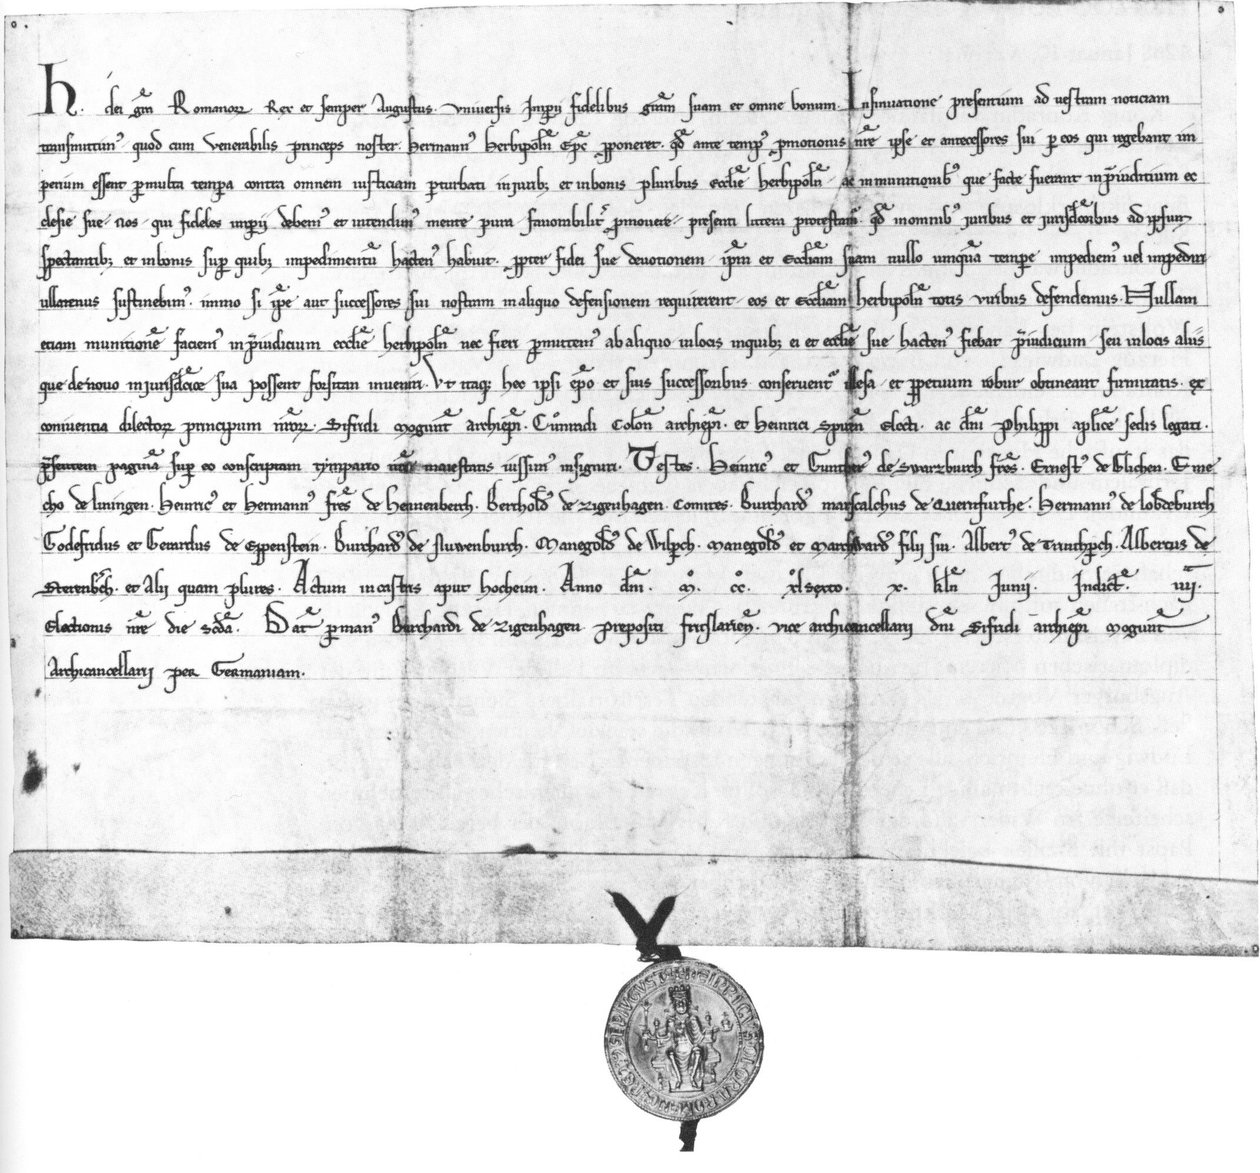 H. dei gr̃a Romanor̃ Rex et semper Augustus. vniuersis Imperij fidelibus gr̃am suam et omne bonum. Insinuatione presentium ad uestram noticiam
transmittimꝰ quod cum venerabilis princeps noster. hermannꝰ herbipoln̄ Ep̃c ꝓponeret. qđ ante tempꝰ ꝓmotionis nr̃e ipse et antecessores sui ꝑ eos qui regebant im
perium essent ꝑ multa tempora contra omnem iusticiam ꝑturbati in iurib; et in bonis pluribus Eccl̃ie herbipoln̄. ac in munitionibꝰ que facte fuerant in p̃iuditium ec
clesie sue. nos qui fideles imperij debemꝰ et intendimꝰ mente pura fauorabilit̃ ꝓmouere. presenti littera protestam̃. qđ in omnibꝰ iuribus et iurisđcõibus ad ipsum
spectantib; et in bonis sup̱ quib; impedimentũ hactenꝰ habuit. ꝓpter fidei sue deuotionem ip̃m et Eccl̃iam suam nullo umquã tempore impediemꝰ uel impediri
ullatenus sustinebimꝰ. immo si ip̃e aut successores sui nostram in aliquo defensionem requirerent eos et Eccl̃iam herbipoln̄ totis viribus defendemus. Nullam
etiam munitionẽ faciemꝰ in p̃iudicium eccl̃ie herbipoln̄ nec fieri ꝑmittemꝰ ab aliquo in locis in quib; ei et eccl̃ie sue hactenꝰ fiebat p̃iudicium seu in locis aliis
que de novo in iurisđcioe sua possent forsitan inueniri. Vt itaq; hec ipsi ep̃o et suis successoribus conseruent̃ illesa. et ꝑpetuum robur obtineant firmitatis. ex
coniuentia dilector̃ principum nr̃or̃. Sifridi Mogunt̃ archiep̃i. Cunradi Colon̄ archiep̃i. et heinrici Spiren̄ Electi. ac dn̄i Philippi apl̃ice sedis legati.
p̃sentem paginã sup̱ eo conscriptam tỹpario nr̃e maiestatis iussimꝰ insigniri. Testes. Heinricꝰ et Guntherꝰ de Swarzburch fr̃es. Ernestꝰ de Glichen. Eme
cho de liningen. Heinricꝰ et Hermannꝰ fr̃es de Hennenberch. Bertholđꝰ de Zigenhagen. Comites. Burcharđꝰ marscalchus de Quernfurthe. Hermannꝰ de lobdeburch
Godefridus et Gerardus de Eppenstein. Burcharđꝰ de Nuwenburch. Manegolđꝰ de Wilperch. Manegolđꝰ et Marchwarđꝰ filij sui. Albertꝰ de Trinchperch. Albertus de
Sterenberch. et Alij quam plures. Actum in castris aput hocheim. Anno dn̄i. M°. cc°. xl sexto. x. kl̃n Iunij. Indict̃. iiij.
Electionis nr̃e die scđa. Dat̃ ꝑ manꝰ Burchardi de Zigenhagen prepositi frislarien̄. vice archicancellarij dn̄i Sifridi archiep̃i Mogunt̃
Archicancellarij per Germaniam.